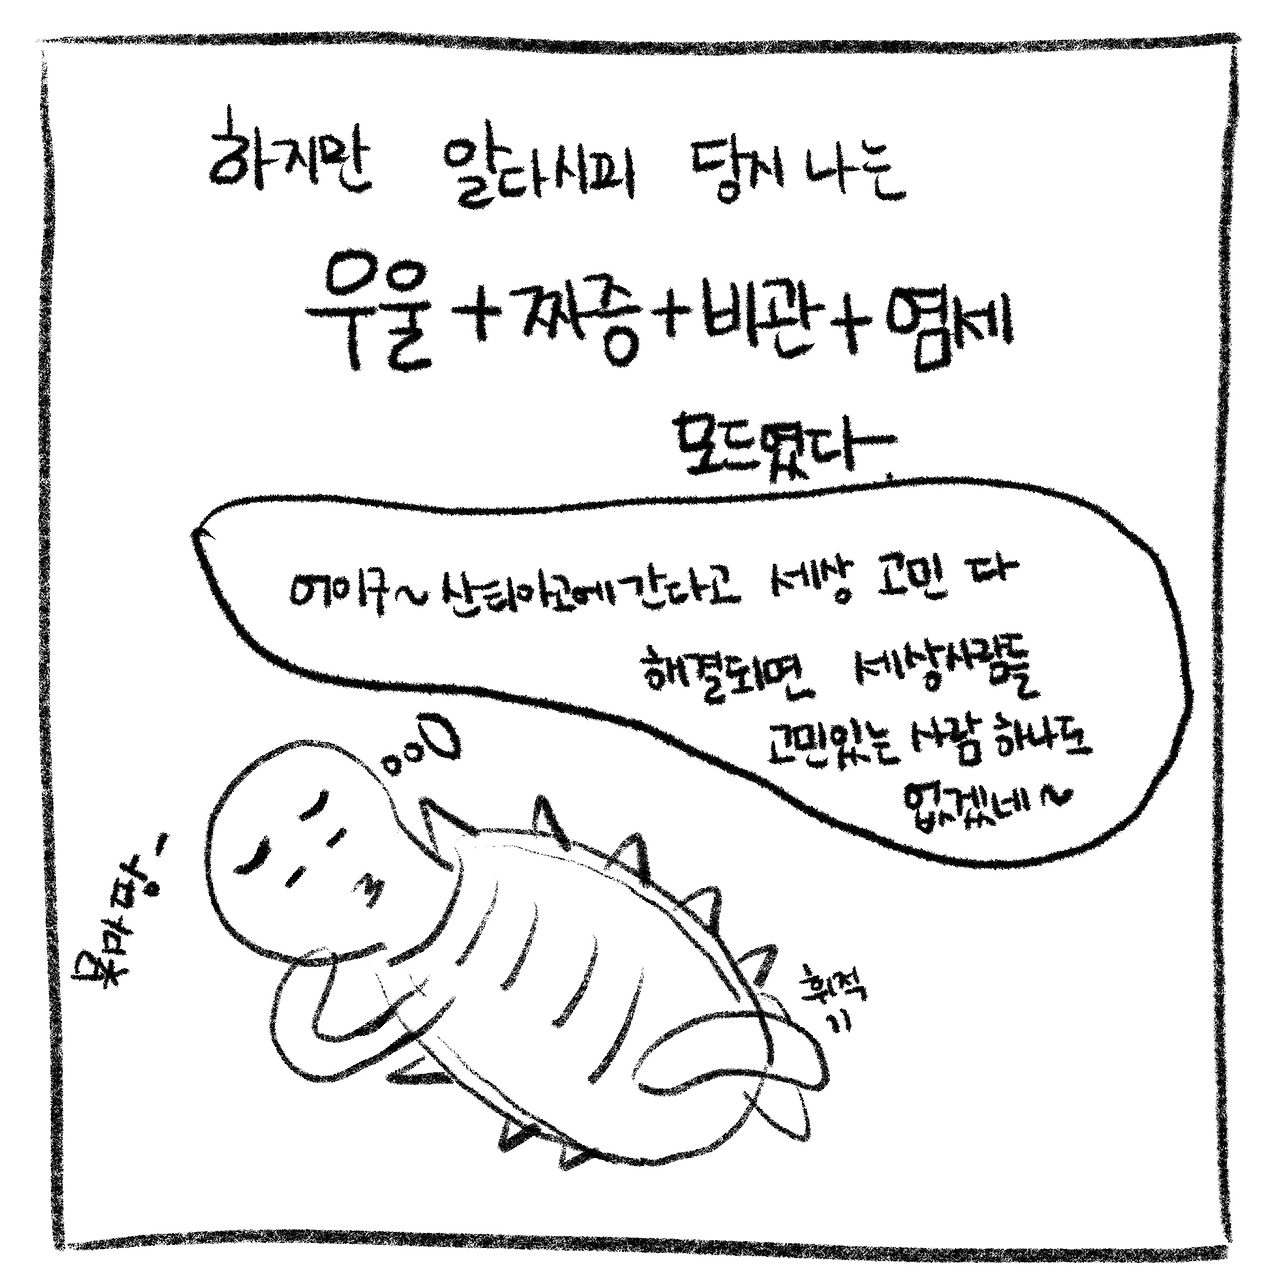 하지만 알다시피 당시 나는
우울+짜증+비관+염세
모드였다-.
어이구~ 산티아고에 간다고 세상 고민 다
해결되면 세상사람들
고민있는 사람 하나도
없겠네~
못마땅-
휘적